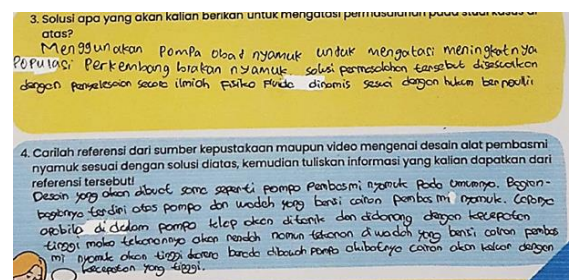 3. Solusi apa yang akan kalian berikan untuk mengatasi permasalahan pada studi kasus di
atas?
Menggunakan Pompa obat nyamuk untuk mengatasi meningkatnya
Populasi Perkembang biakan nyamuk. solusi permasalahan tersebut disesuaikan
dengan penyelesaian secara ilmiah Fisika Fluida dinamis sesuai dengan hukum bernoulli
4. Carilah referensi dari sumber kepustakaan maupun video mengenai desain alat pembasmi
nyamuk sesuai dengan solusi diatas, kemudian tuliskan informasi yang kalian dapatkan dari
referensi tersebut!
Desain yang akan dibuat sama seperti pompa pembasmi nyamuk Pada umumnya. Bagian-
bagiannya terdiri atas pompa dan wadah yang berisi cairan pembasmi nyamuk. Caranya
apabila didalam pompa telep akan ditarik dan didorong dengan kecepatan
tinggi maka tekanannya akan rendah namun tekanan diwadah yang berisi cairan pembas
mi nyamuk akan tinggi karena berada dibawah Pompa akibatnya cairan akan keluar dengan
kecepatan yang tinggi.